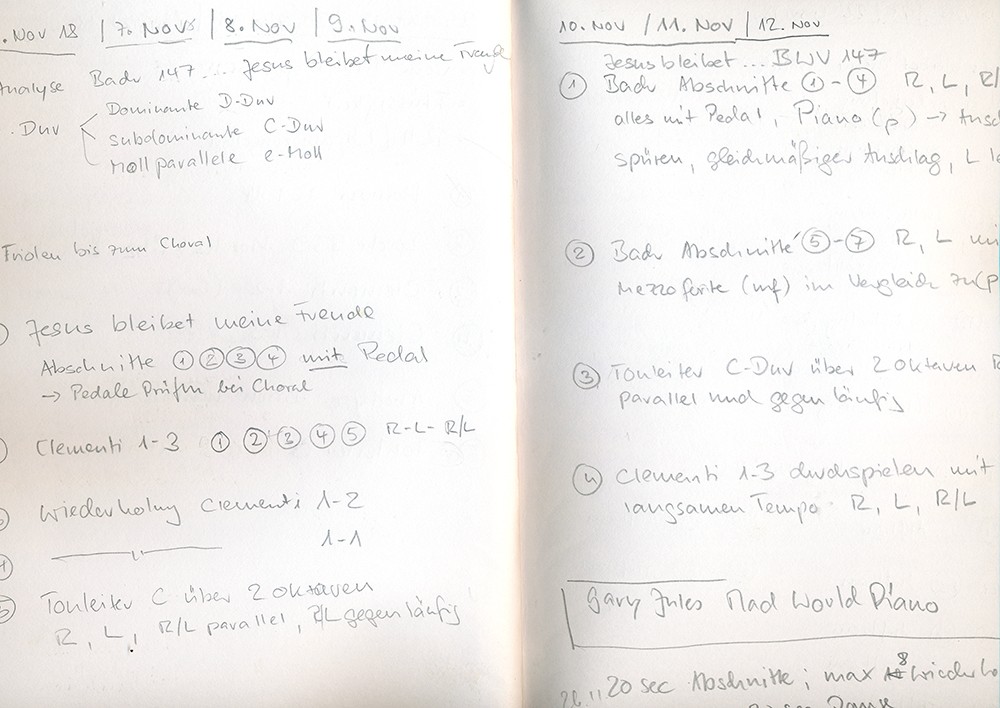 . Nov 18 | 7. Nov | 8. Nov | 9. Nov
Analyse Bach 147 ... Jesus bleibet meine Freude
. Dur Dominante D-Dur
Subdominante C-Dur
Moll parallele e-Moll
Triolen bis zum Choral
Jesus bleibet meine Freude
Abschnitte ① ② ③ ④ mit Pedal
→ Pedale Prüfen bei Choral
Clementi 1-3 ① ② ③ ④ ⑤ R-L-R/L
Wiederholung Clementi 1-2
1-1
Tonleiter C über 2 Oktaven
R, L, R/L parallel, R/L gegenläufig
10. Nov / 11. Nov / 12. Nov
Jesus bleibet ... BWV 147
① Bach Abschnitte ①-④ R, L, R/
alles mit Pedal, Piano (p) → Ansc
spüren, gleichmäßiger Anschlag, L le
② Bach Abschnitte ⑤-⑦ R, L mi
Mezzoforte (mf) im Vergleich zu (p
③ Tonleiter C-Dur über 2 Oktaven R
parallel und gegenläufig
④ Clementi 1-3 durchspielen mit
langsamen Tempo R, L, R/L
Gary Jules Mad World Piano
20 sec Abschnitte; max 8 Wiederho